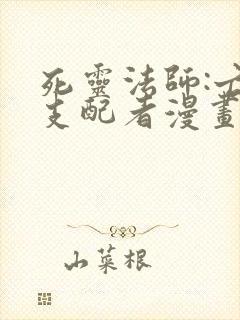 死靈法師:
支配者漫畫
山菜根